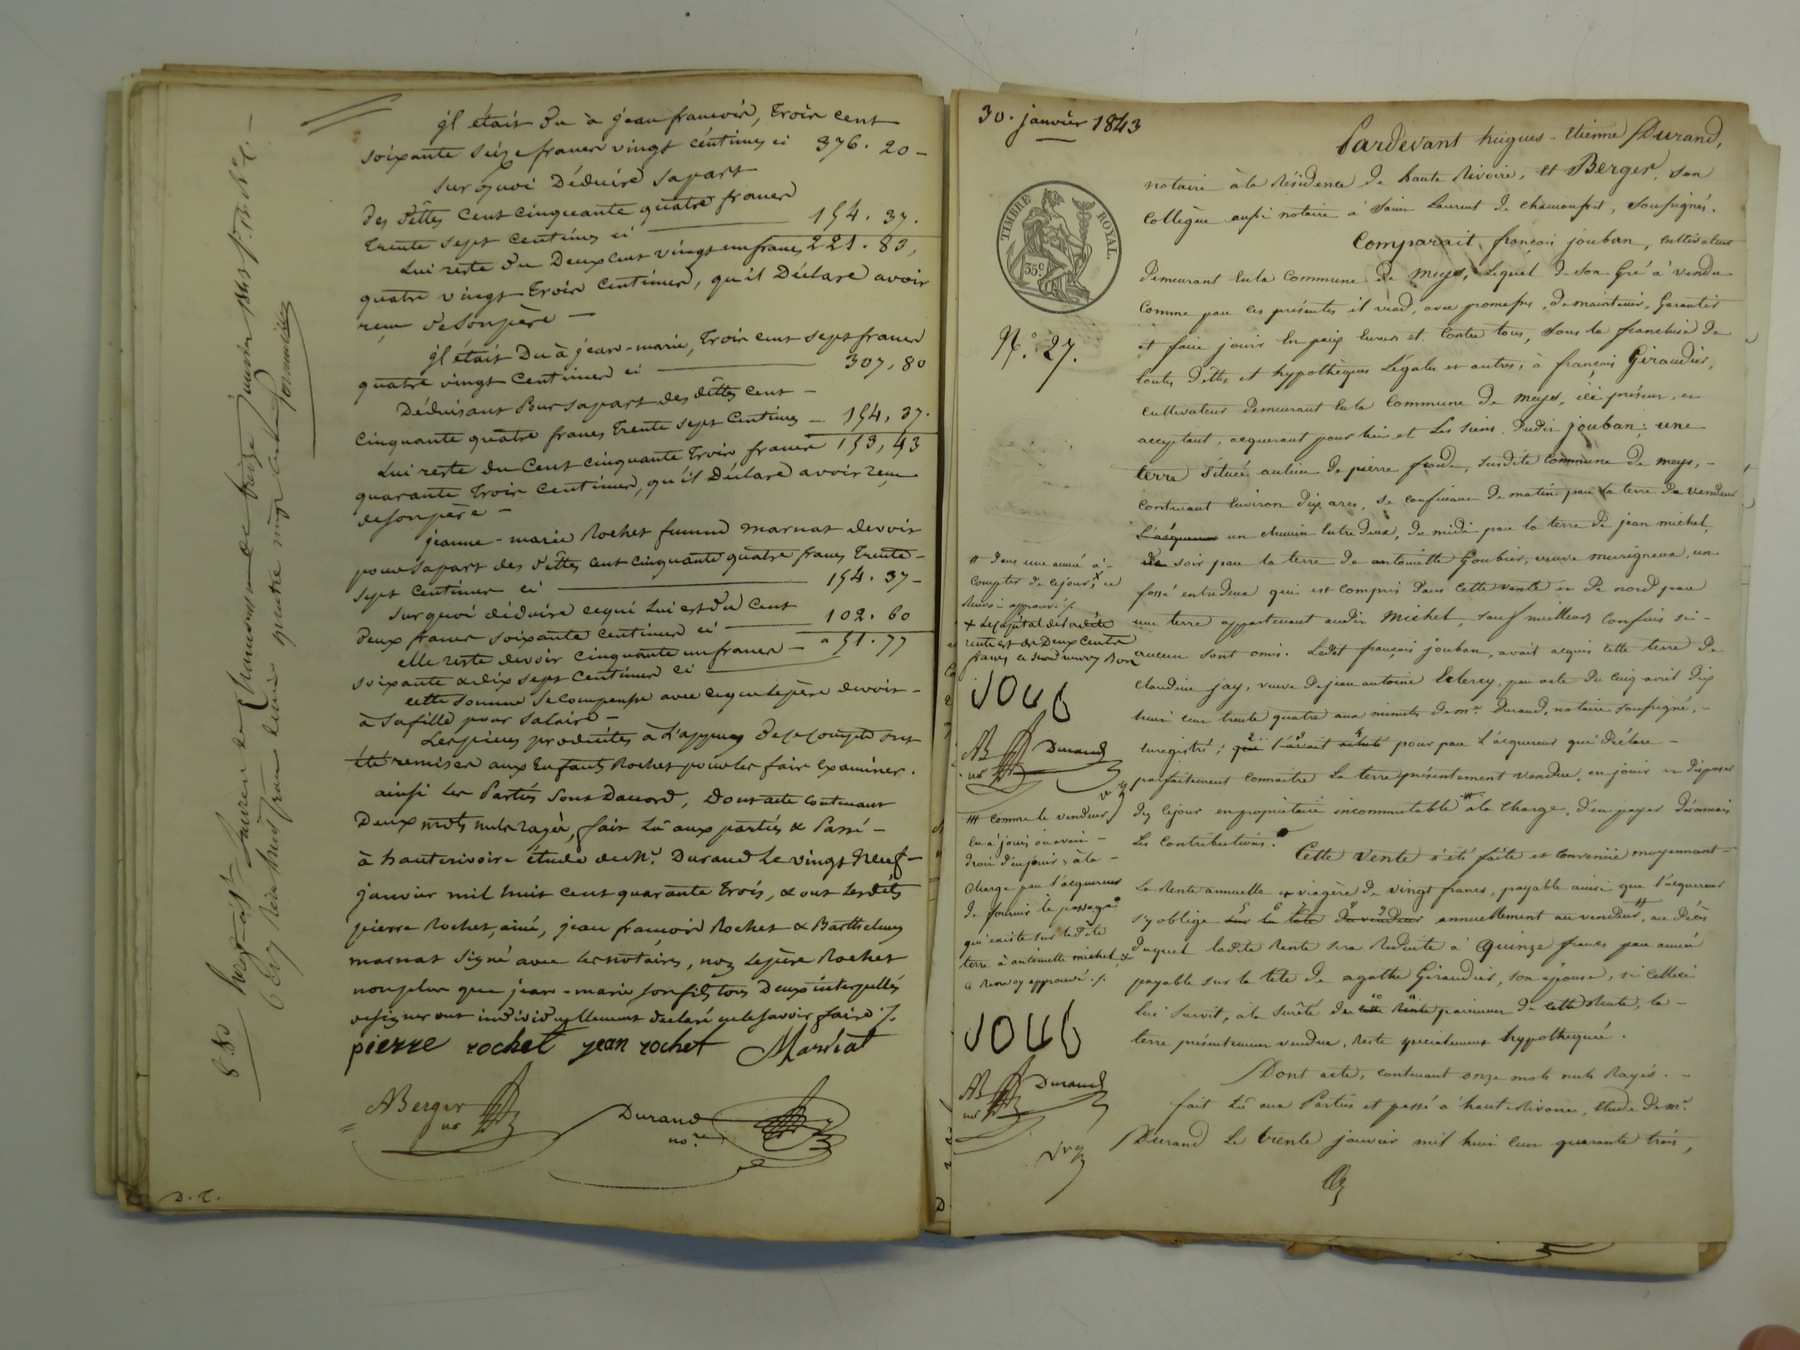 il était du à jean francois, Trois cent
soixante seize francs vingt centimes ci 376. 20 -
sur quoi Déduire sapart
des dettes cent cinquante quatre francs
trente sept centimes ci 154. 37.
Lui reste du Deux cent vingt un francs 221. 83,
quatre vingt Trois centimes, qu'il Déclare avoir
reçu de son père -
il était Du à jean-marie, Trois cent sept francs
quatre vingt centimes ci 307, 80
Déduisant Pour sapart des dettes cent -
cinquante quatre francs trente sept Centimes - 154, 37.
Lui reste du Cent cinquante Trois francs 153, 43
quarante Trois centimes, qu'il Déclare avoir reçu
de son père -
jeanne-marie Rochet femme marnat devoir
pour sapart des dettes cent cinquante quatre francs trente -
sept centimes ci 154. 37 -
sur quoi déduire ce qui Lui est du cent
deux francs soixante centimes ci 102. 60
elle reste devoir cinquante un francs - 51. 77
soixante & dix sept centimes ci
cette somme se compense avec ce que le père devoit -
à sa fille pour salaire -
Les pièces produites à L'appuy de ce compte ont
été remises aux Enfants Rochet pour les fair examiner.
ainsi les Parties sont Daccord, Dont acte contenant
Deux mots nuls rayés, fait Lu aux parties & Passé -
à hauterivoire étude de Mr. Durand le vingt neuf -
janvier mil huit cent quarante trois, & ont lesdits
pierre Rochet, ainé, jean francois Rochet & Barthelemy
marnat signé avec les notaires, non le père Rochet
non plus que jean-marie son fils tous Deux interpellés
de signer ont individuellement declaré ne le savoir faire ./.
pierre rochet jean rochet Marnat
ABerger
no
Durand
nore
D. T.
30. janvier 1843
TIMBRE ROYAL.
35c.
N.o 27.
Pardevant hugues-Etienne Durand,
notaire à la Résidence de haute Rivoire, et Berger, son
Collègue aussi notaire à Saint Laurent de chamousset, soussignés.
Comparait françois jouban, cultivateur
demeurant en la Commune de meys, Lequel de son Gré a vendu
comme par ces présentes il vend, avec promesses, de maintenir, Garantir
et faire jouir En paix envers et contre tous, sous la franchise de
toutes dettes et hypothèques Légales et autres, à françois Giraudier,
cultivateur demeurant en la Commune de meys, ici présent, et
acceptant, acquerant pour lui et les siens, dudit jouban; une
terre située au lieu de pierre froide, susdite commune de meys, -
contenant environ dix ares, se confinant de matin par la terre du vendeur
L'acquereur un chemin entre deux, de midi par la terre de jean michel,
de soir par la terre de antoinette Goubier, veuve murigneux, un
fossé entre deux qui est compris dans cette vente et de nord par
une terre appartenant audit michel, sauf meilleurs confins si -
aucun sont omis. Ledit françois jouban, avait acquis cette terre de
claudine jay, veuve de jean antoine Leclercy, par acte du cinq avril dix
huit cent trente quatre aux minutes de mr. Durand, notaire soussigné, -
Enregistré; qui l'avait acheté pour par L'acquereur qui déclare -
parfaitement connaitre La terre présentement vendue, en jouir et disposer
dez ce jour en propriétaire incommutable # à la charge, d'en payer désormais
Les contributions.
Cette Vente a été faite et convenue moyennant -
La Rente annuelle et viagère de vingt francs, payable ainsi que l'acquereur
s'y oblige sur la tête du vendeur annuellement au vendeur #, au décès
duquel ladite Rente sera Réduite à quinze francs par année
payable sur la tête de agathe Giraudier, son épouse, si celle-ci
Lui survit, à la sûreté de cette Rente paiement de cette Rente, la -
terre présentement vendue, Reste spécialement hypothequée.
Dont acte, contenant onze mots nuls Rayés. -
fait Lu aux Parties et passé à haute Rivoire, Etude de mr.
Durand Le trente janvier mil huit cent quarante trois,
# dans une année à -
compter de ce jour, x ce
Renvoi approuvé ./.
x Le capital de ladite
rente est de Deux Cents
francs ce second renvoy Bon
AB
no
Durand
## comme le vendeur
en a joui ou avait -
droit d'en jouir, à la -
charge par l'acquereur
de fournir le passage
qui existe sur ladite
terre à antoinette michel &
ce Renvoy approuvé ./.
AB
no
Durand